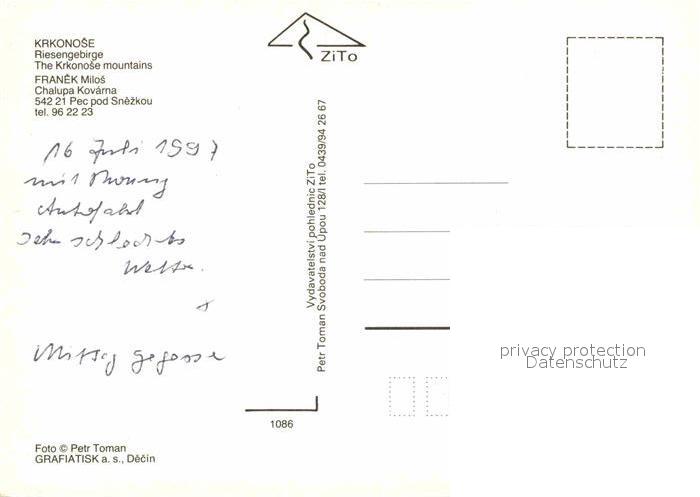 KRKONOŠE
Riesengebirge
The Krkonoše mountains
FRANĚK Miloš
Chalupa Kovárna
542 21 Pec pod Sněžkou
tel. 96 22 23
ZiTo
16 Juli 1997
mit
Autofahrt
sehr schlechtes
Wetter.
Mittag gegessen
Vydavatelství pohlednic ZiTo
Petr Toman Svoboda nad Úpou 128/I tel. 0439/94 26 67
1086
privacy protection
Datenschutz
Foto © Petr Toman
GRAFIATISK a. s., Děčín